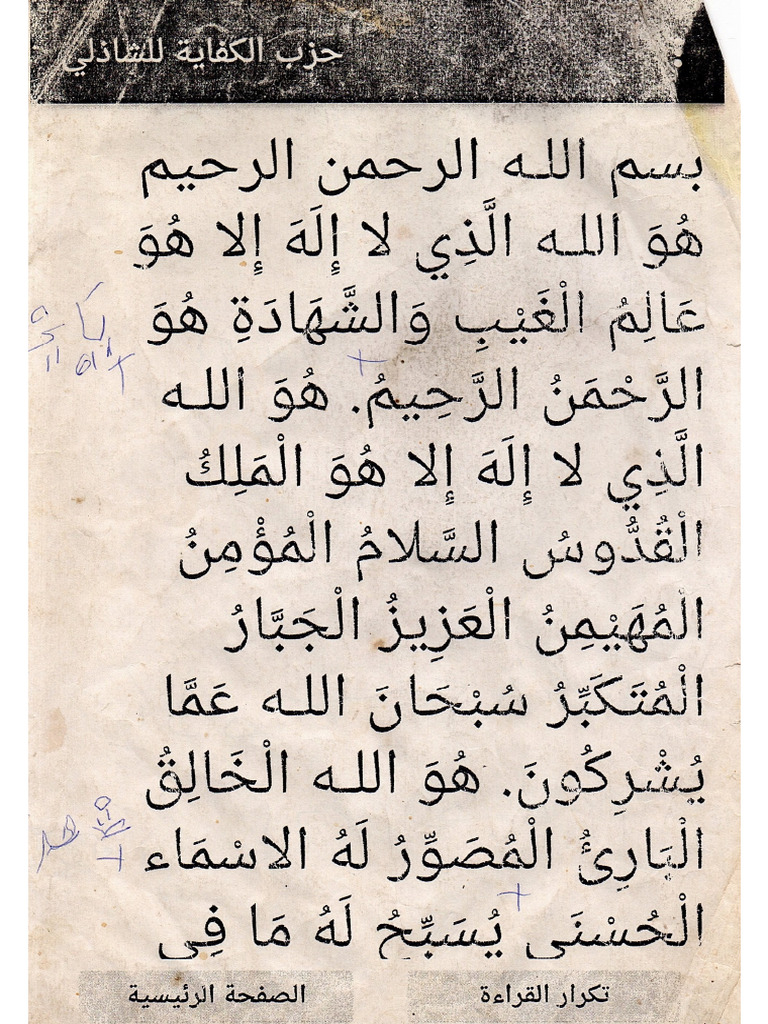 حزب الكفاية للشاذلي
بسم اللـه الرحمن الرحيم
هُوَ اللـه الَّذِي لا إِلَهَ إِلا هُوَ
عَالِمُ الْغَيْبِ وَالشَّهَادَةِ هُوَ
الرَّحْمَنُ الرَّحِيمُ. هُوَ اللـه
الَّذِي لا إِلَهَ إِلا هُوَ الْمَلِكُ
الْقُدُّوسُ السَّلامُ الْمُؤْمِنُ
الْمُهَيْمِنُ الْعَزِيزُ الْجَبَّارُ
الْمُتَكَبِّرُ سُبْحَانَ اللـه عَمَّا
يُشْرِكُونَ. هُوَ اللـه الْخَالِقُ
الْبَارِئُ الْمُصَوِّرُ لَهُ الاسْمَاء
الْحُسْنَى يُسَبِّحُ لَهُ مَا فِي
تكرار القراءة
الصفحة الرئيسية